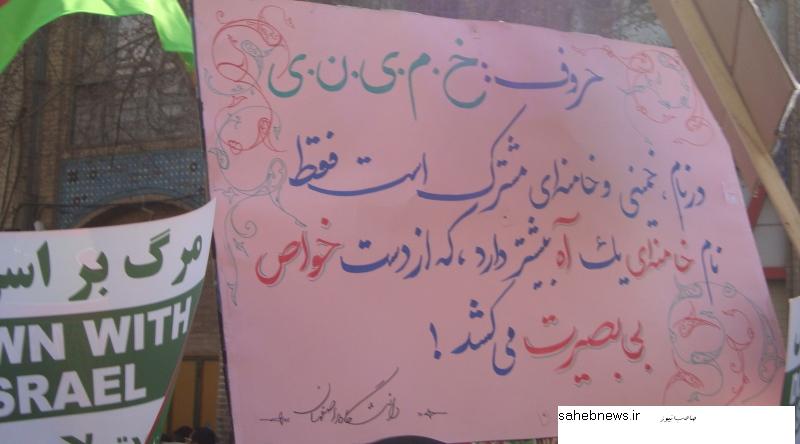 حروف: خ.م.ی.ن.ی
در نام، خمینی و خامنه‌ای مشترک است فقط
نام خامنه‌ای یك آه بیشتر دارد، که از دست خواص
بی بصیرت می‌کشد!
دانشگاه اصفهان
مرگ بر اس
WN WITH
SRAEL
sahebnews.ir
صاحب نیوز